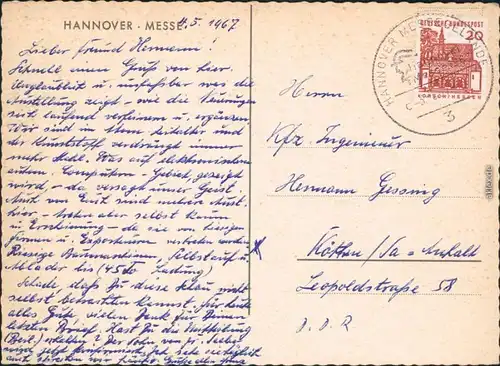 HANNOVER · MESSE, 4.5.1967
Lieber Freund Hermann!
Schnell einen Gruß von hier.
Unglaublich u. unfaßbar was die
Ausstellung zeigt – wie die Neuerungen
sich laufend verfeinern u. ergänzen.
Wir sind im Atom Zeitalter und
der Kunststoff verdrängt immer
mehr Stahl. Was auf elektronischem
Computer - Gebiet gezeigt
wird – da versagt unser Geist.
Auch von Euch sind mehrere Aust.
hier – treten aber selbst kaum
in Erscheinung – da sie von hiesigen
Firmen u. Exporteuren vertreten werden.
Riesige Baumaschinen, Selbstfahr u.
Allader bis (45 to Ladung)
Schade, daß Du diese Schau nicht
selbst betrachten kannst. Für heute
alles Gute, vielen Dank für Deinen
letzten Brief. Hast Du die
erhalten? Der Sohn von
wird jetzt konfirmiert,
HANNOVER MESSEGELÄNDE
DEUTSCHE BUNDESPOST
20
LORSCH/HESSEN
Herrn
Kfz. Ingenieur
Hermann Gessing
Köthen / Sa - Anhalt
Leopoldstraße 58
D. D. R